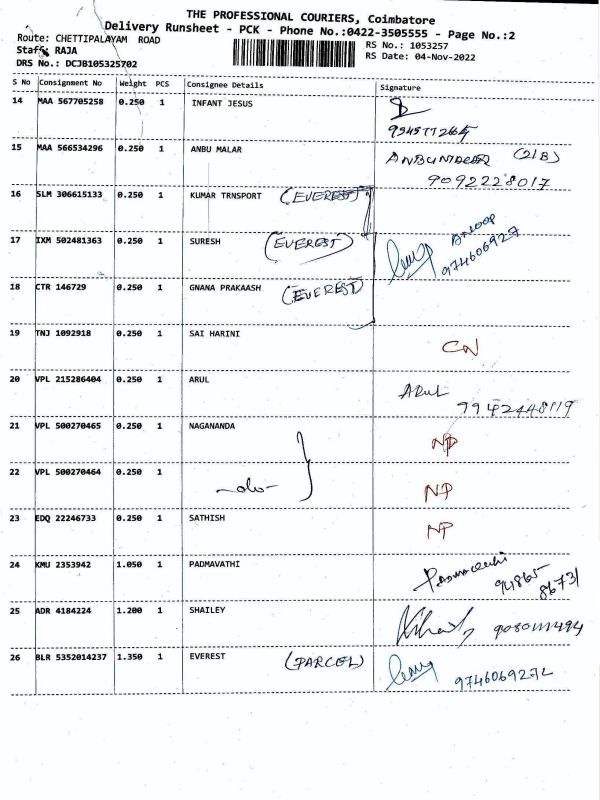 THE PROFESSIONAL COURIERS, Coimbatore
Delivery Runsheet - PCK - Phone No.:0422-3505555 - Page No.:2
Route: CHETTIPALAYAM ROAD
RS No.: 1053257
Staff: RAJA
RS Date: 04-Nov-2022
DRS No.: DCJB105325702
S No Consignment No Weight PCS Consignee Details Signature
14 MAA 567705258 0.250 1 INFANT JESUS
15 MAA 566534296 0.250 1 ANBU MALAR (21B)
9092228017
16 SLM 306615133 0.250 1 KUMAR TRNSPORT (EVEREST)
17 IXM 502481363 0.250 1 SURESH (EVEREST) ANOOP
974606927
18 CTR 146729 0.250 1 GNANA PRAKAASH (EVEREST)
19 TNJ 1092918 0.250 1 SAI HARINI CN
20 VPL 215286404 0.250 1 ARUL ARUL
9942448119
21 VPL 500270465 0.250 1 NAGANANDA NP
22 VPL 500270464 0.250 1 -do- NP
23 EDQ 22246733 0.250 1 SATHISH NP
24 KMU 2353942 1.050 1 PADMAVATHI Padmavathi
94865
86731
25 ADR 4184224 1.200 1 SHAILEY
26 BLR 5352014237 1.350 1 EVEREST (PARCEL)